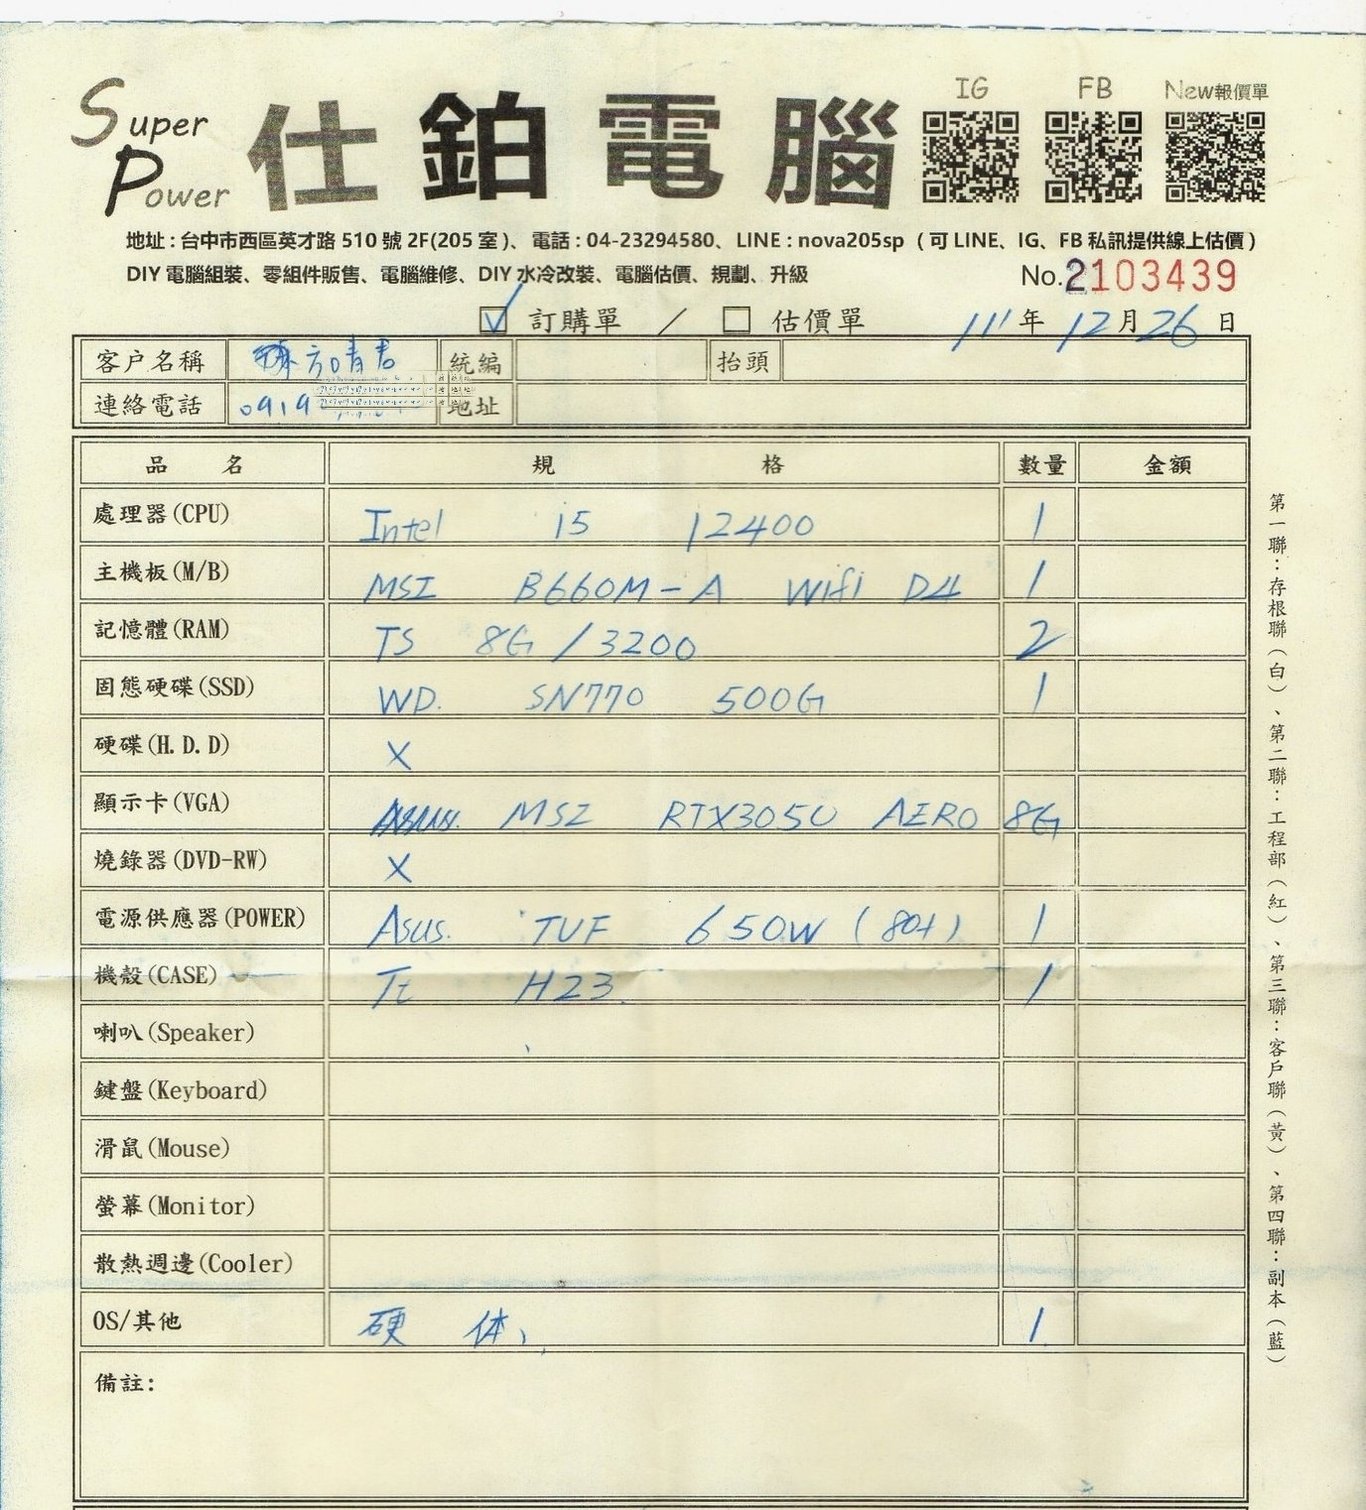 Super Power 仕鉑電腦 IG FB New報價單
地址:台中市西區英才路510號2F(205室)、電話:04-23294580、LINE:nova205sp (可LINE、IG、FB私訊提供線上估價)
DIY電腦組裝、零組件販售、電腦維修、DIY水冷改裝、電腦估價、規劃、升級 No.2103439
☑ 訂購單 / □ 估價單 111年12月26日
客户名稱 統編 抬頭
連絡電話 0919 地址
品名 規格 數量 金額
處理器(CPU) Intel i5 12400 1
主機板(M/B) MSI B660M-A Wifi D4 1
記憶體(RAM) TS 8G/3200 2
固態硬碟(SSD) WD. SN770 500G 1
硬碟(H.D.D) X
顯示卡(VGA) MSI RTX3050 AERO 8G
燒錄器(DVD-RW) X
電源供應器(POWER) Asus. TUF 650W (80+) 1
機殼(CASE) Tt H23. 1
喇叭(Speaker)
鍵盤(Keyboard)
滑鼠(Mouse)
螢幕(Monitor)
散熱週邊(Cooler)
OS/其他 硬体、 1
備註:
第一聯:存根聯(白)、第二聯:工程部(紅)、第三聯:客戶聯(黃)、第四聯:副本(藍)